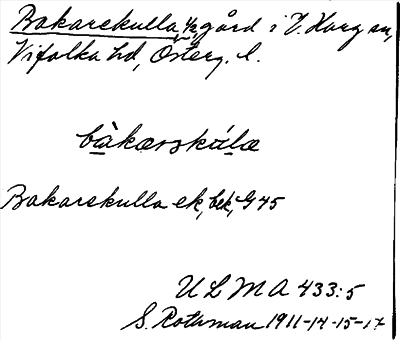 Bakarekulla, ½ gård i V. Harg sn,
Vifolka hd, Österg. l.
bàkærskúlæ
Bakarekulla ek, bek, G 45
ULMA 433:5
S. Rothman 1911-14-15-17